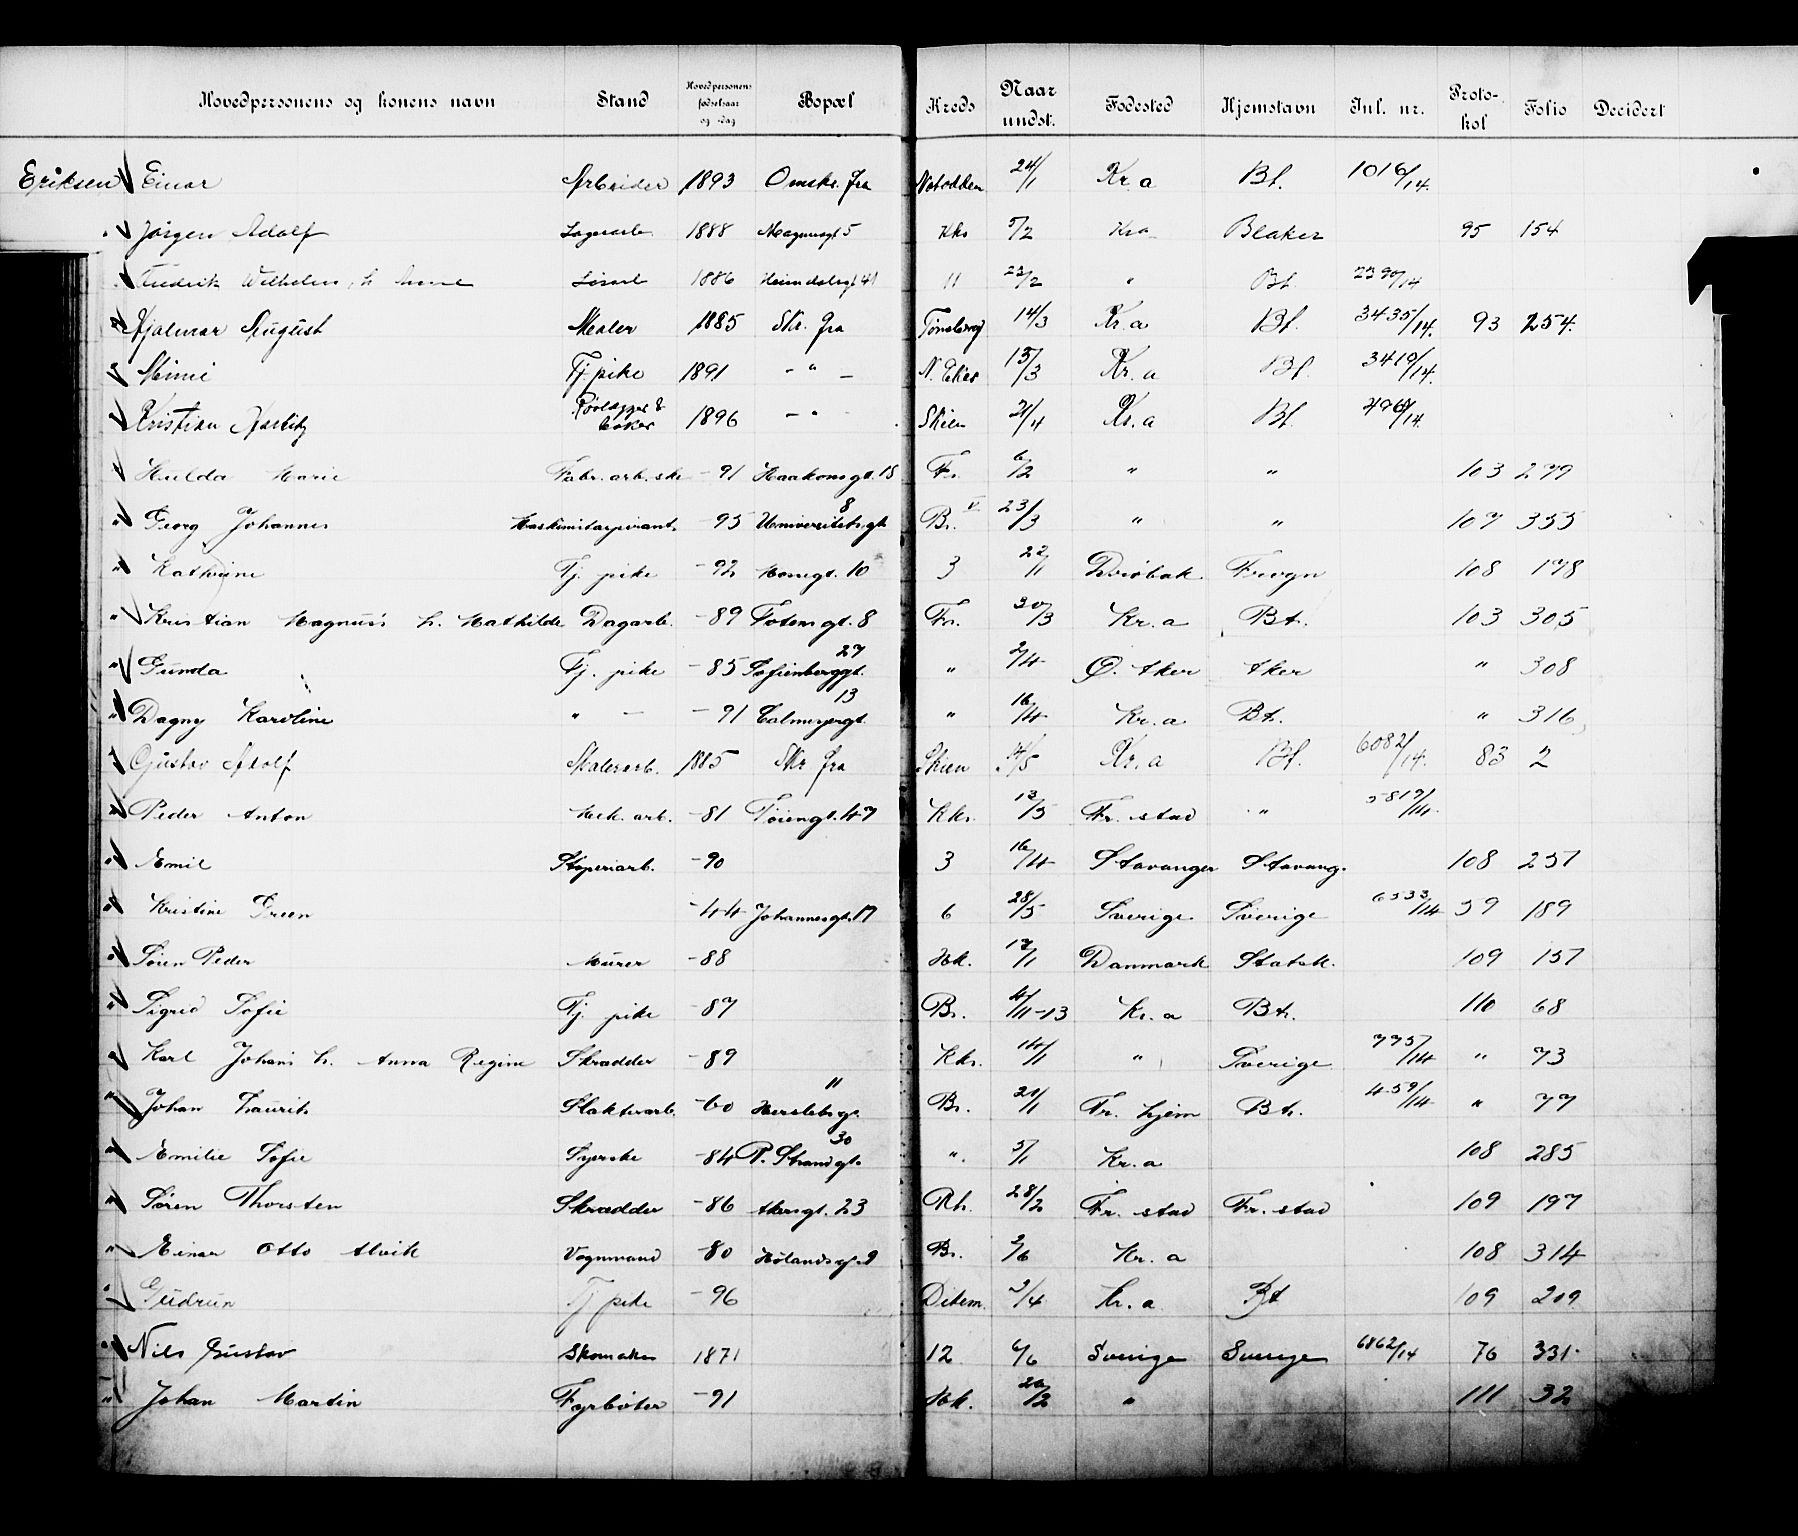 Hovedpersonens og konens navn Stand Hovedpersonens fødselsaar og -dag Bopæl Kreds Naar undst. Fødested Hjemstavn Inl. nr. Protokol Folio Decidert
Eriksen Einar Arbeider 1893 Omskr. fra Notodden 24/1 Kr.a Bt. 1016/14.
Jørgen Adolf Lagerarb. 1888 Magnusgt 5 Kks 5/2 Kra Blaker 95 154
Fredrik Wilhelm, h. Løsarb 1886 Heimdalsgt 41 11 23/2 " Bt. 2390/14
Hjalmar August Maler 1885 Skr. fra Tønsberg 14/3 Kr.a Bt. 3435/14. 93 254.
Mimi Tj. pike 1891 - " - N. Eker 15/3 Kr.a Bt. 3410/14.
Kristian Rørlægger & 1896 - " Skien 21/4 Kr.a Bt.
Hulda Marie Fabr. arb. ske - 91 Haakonsgt. 15 Fr. 6/2 " " 103 279
" Georg Johannes Maskinistaspirant. - 95 Universitetsgt. 8 Br. V. 23/3 " " 107 355
" Kathrine Tj. pike - 92 10 3 22/1 Drøbak Frogn 108 178
" Kristian Magnus h. Mathilde Dagarb. - 89 Totensgt. 8 Fr. 30/3 Kr.a Bt. 103 305
" Gunda Tj. pike - 85 Sofienberggt. 27 " 2/4 Ø. Aker Aker " 308
" Dagny Karoline " - - 91 Calmeyergt. 13 " 16/4 Kr.a Bt. " 316
Gustav Adolf Malerarb. 1885 Skr fra Skien 14/5 Kr.a Bt. 6082/14. 83 2
" Peder Anton Mek. arb. - 81 Tøiengt. 47 Kks. 13/5 Fr. stad " 5819/14.
" Emil Støperiarb. - 90 3 16/4 Stavanger Stavang. 108 251
" Kristine Green - 44 Johannesgt. 17 6 28/5 Sverige Sverige 6533/14 59 189
" Søren Peder Murer - 88 Hk. 17/1 Danmark Statsk. 109 151
" Sigrid Sofie Tj. pike - 87 Br. 4/11-13 Kr.a Bt. 110 68
Karl Johan h. Anna Regine Skrædder - 89 Kks. 14/1 " Sverige 775/14 " 73
" Johan Laurits Slakterarb. - 60 Herslebsgt. 11 Br. 21/1 Fr. hjem Bt. 459/14 " 77
" Emilie Sofie Syerske - 84 P. Strandgt. 30 ". 5/1 Kr.a 108 285
" Søren Thorsten Skrædder - 86 Akersgt. 23 Rh. 28/2 Fr. stad Fr. stad 109 197
" Einar Otto Alvik Vognmand - 80 Hølandsgt. 2 Br. 2/6 Kr.a 108 314
" Gudrun Tj pike - 96 Ditem. 3/4 Kr.a Bt 109 209
" Nils Gustav Skomaker 1871 12 6/6 Sverige Sverige 6862/14 76 331
" Johan Martin Fyrbøter - 91 Hk. 20/2 " 111 32